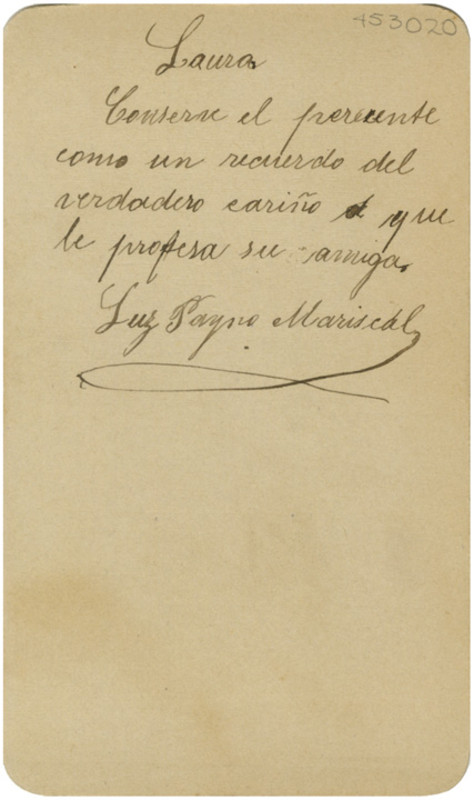 453020
Laura
Conserve el perecente
como un recuerdo del
verdadero cariño que
le profesa su amiga.
Luz Payno Mariscal